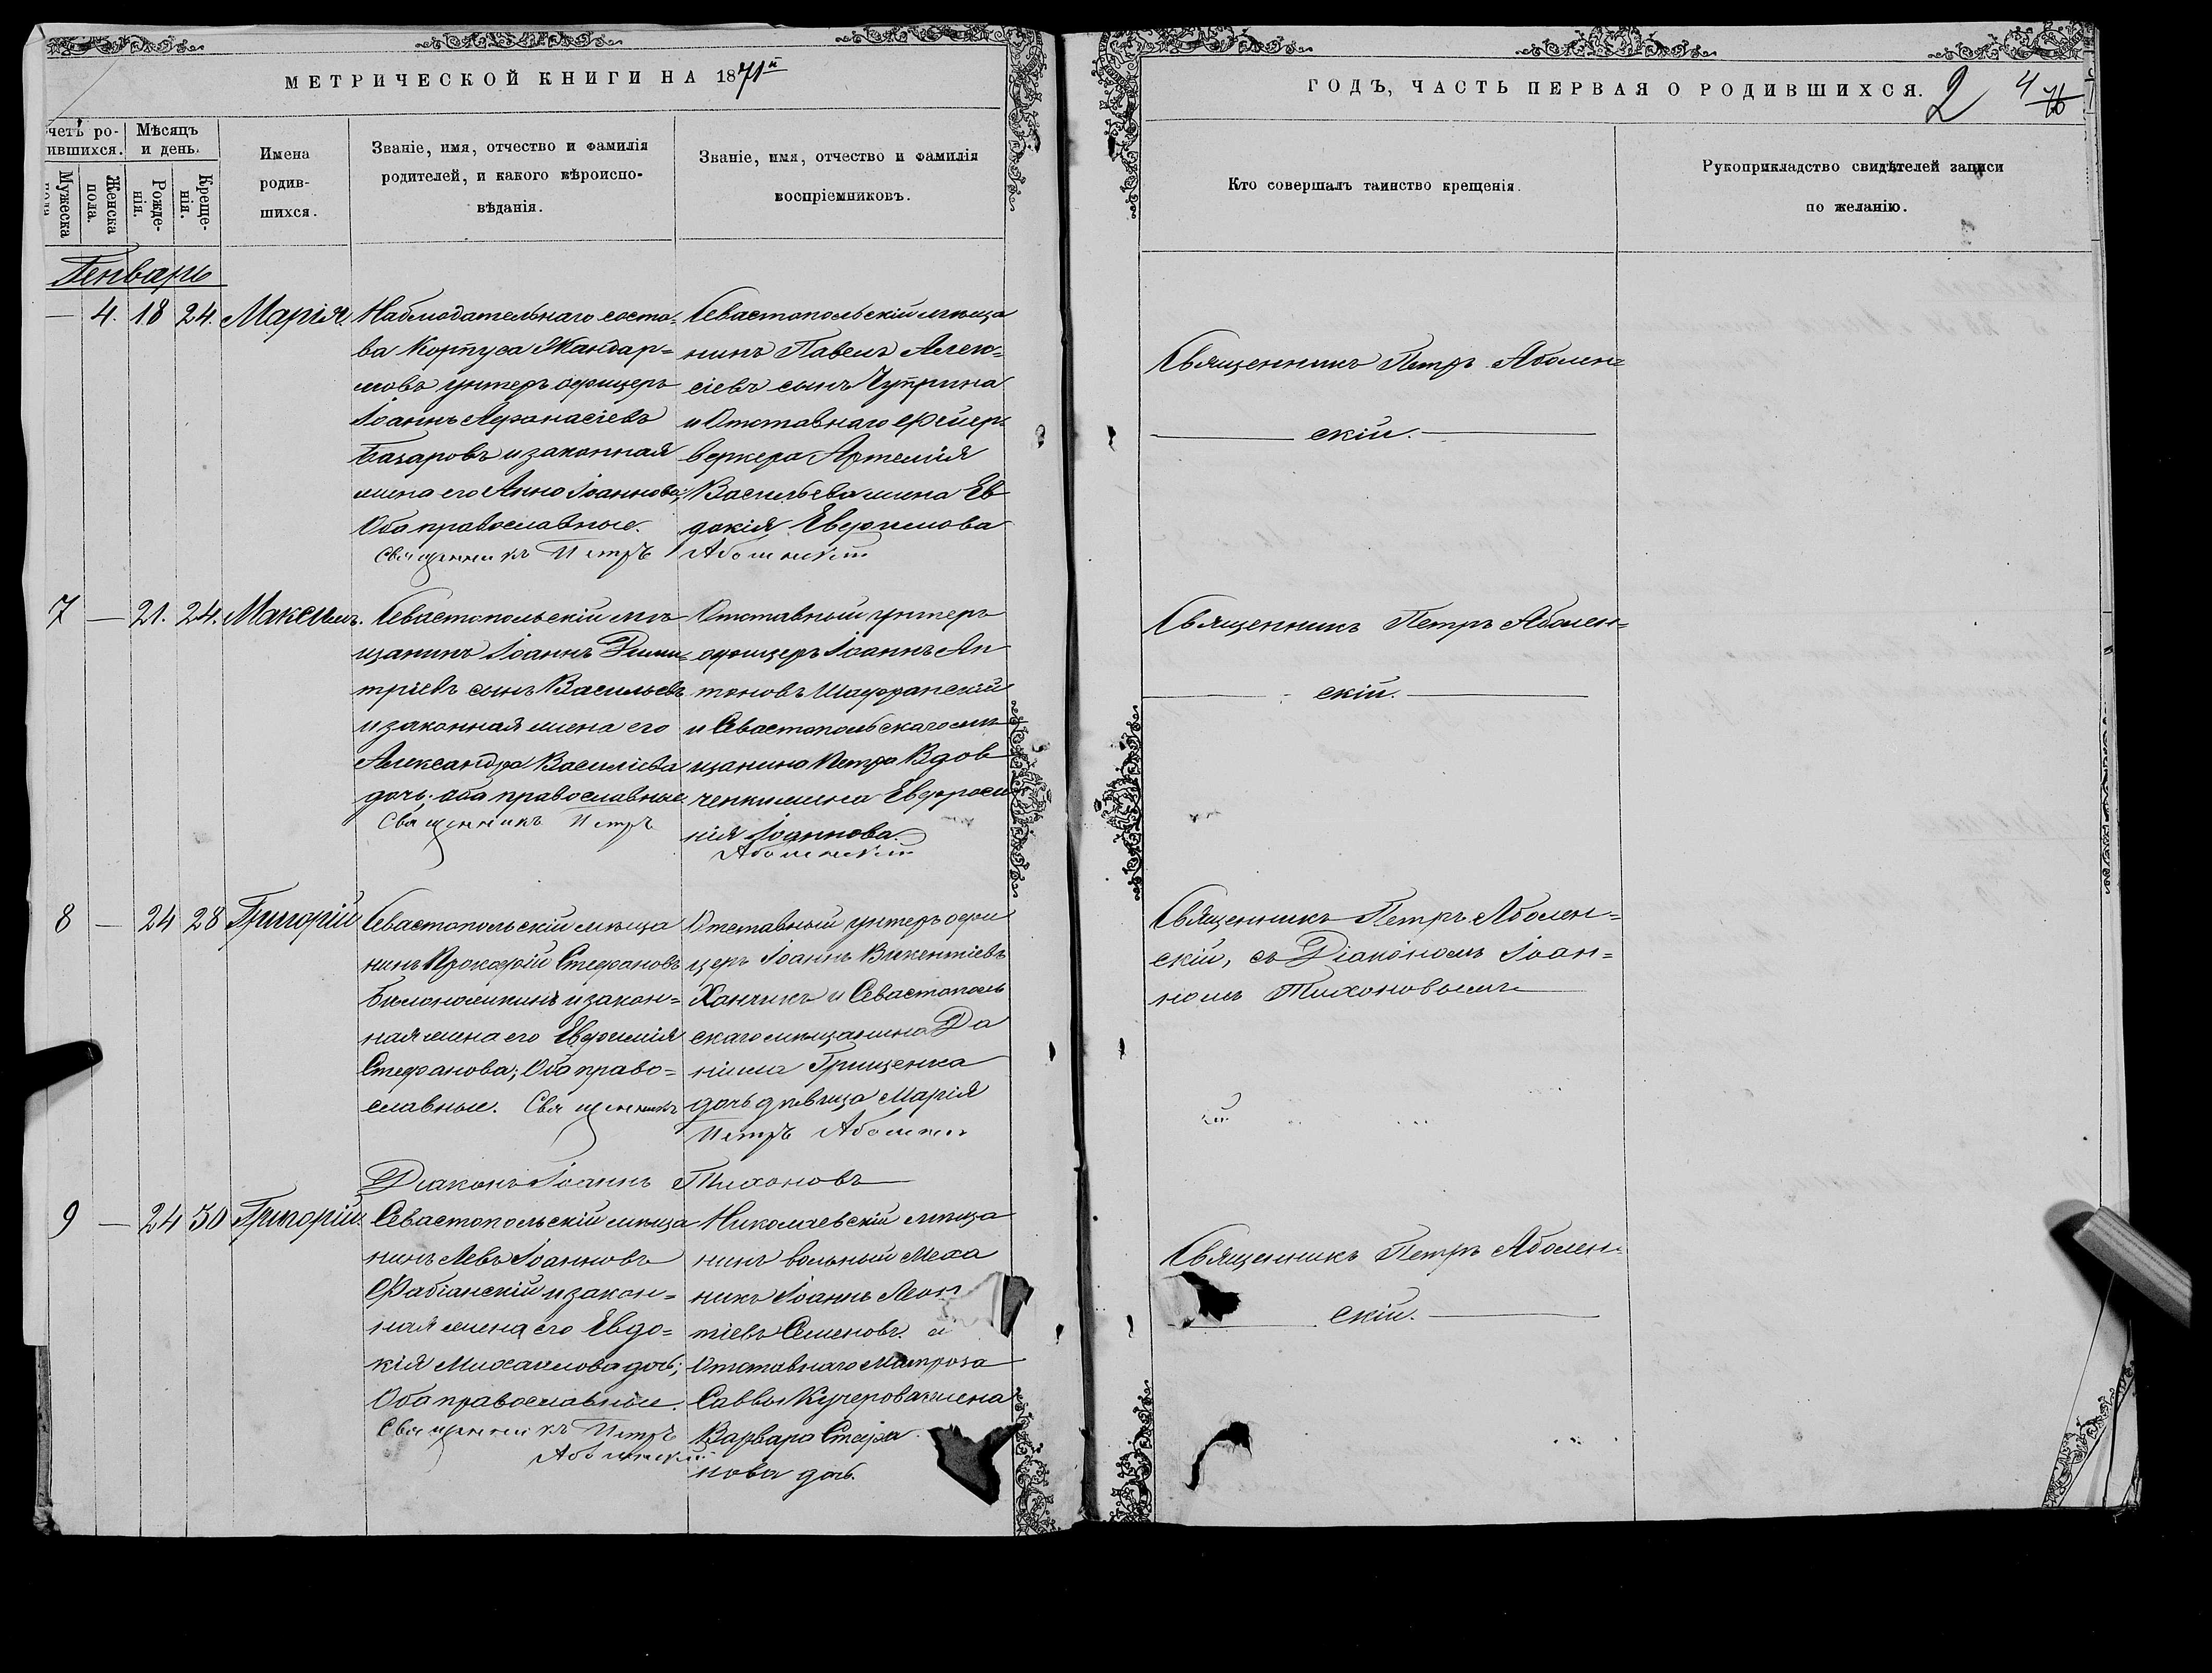 МЕТРИЧЕСКОЙ КНИГИ НА 1871й
ГОДЪ, ЧАСТЬ ПЕРВАЯ О РОДИВШИХСЯ.
2
4
четъ ро-
ившихся.
Мѣсяцъ
и день.
Мужеска
пола
Женска
пола.
Рожде-
нія.
Креще-
нія.
Имена
родив-
шихся.
Званіе, имя, отчество и фамилія
родителей, и какого вѣроиспо-
вѣданія.
Званіе, имя, отчество и фамилія
воспріемниковъ.
Кто совершалъ таинство крещенія.
Рукоприкладство свидѣтелей записи
по желанію.
Генварь
— 4. 18 24. Марія.
Наблюдательнаго соста-
ва Корпуса Жандар=
мовъ унтеръ офицеръ
Іоаннъ Афанасіевъ
Базаровъ и законная
жена его Анна Іоаннова;
Оба православные.
Священникъ Петръ
Севастопольскій мѣща
нинъ Павелъ Алек=
сіевъ сынъ Чуприна
и Отставнаго Фейер-
веркера Артемія
Васильева жена Ев
докія Евфимова
Аболенскій
Священникъ Петръ Аболен=
скій.
7 — 21. 24. Максимъ.
Севастопольскій мѣ
щанинъ Іоаннъ Дими=
тріевъ сынъ Васильевъ
и законная жена его
Александра Василіева
дочь. оба православные.
Священникъ Петръ
Отставный унтеръ
офицеръ Іоаннъ Ан
тоновъ Шафранскій
и Севастопольскаго мѣ
щанина Петра Вдов
ченки жена Евфроси
нія Іоаннова.
Аболенскій
Священникъ Петръ Аболен=
скій.
8 — 24 28 Григорій
Севастопольскій мѣща
нинъ Прокофій Стефановъ
Бѣлоножкинъ и закон=
ная жена его Евфимія
Стефанова; Оба право=
славные. Священникъ
Отставный унтеръ офи
церъ Іоаннъ Викентіевъ
Ханчикъ и Севастополь
скаго мѣщанина Да
ніила Грищенка
дочь дѣвица Марія
Петръ Аболенскій
Діаконъ Іоаннъ Тихоновъ
Священникъ Петръ Аболен=
скій, съ Діакономъ Іоан=
номъ Тихоновымъ
9 — 24 30 Григорій.
Севастопольскій мѣща
нинъ Левъ Іоанновъ
Фабіанскій и закон=
ная жена его Евдо=
кія Михаилова дочь;
Оба православные.
Священникъ Петръ
Аболенскій
Николаевскій мѣща
нинъ вольный Меха
никъ Іоаннъ Леон
тіевъ Семеновъ. и
Отставнаго Матроза
Саввы Кучерова жена
Варвара Стефа
нова дочь.
Священникъ Петръ Аболен-
скій.